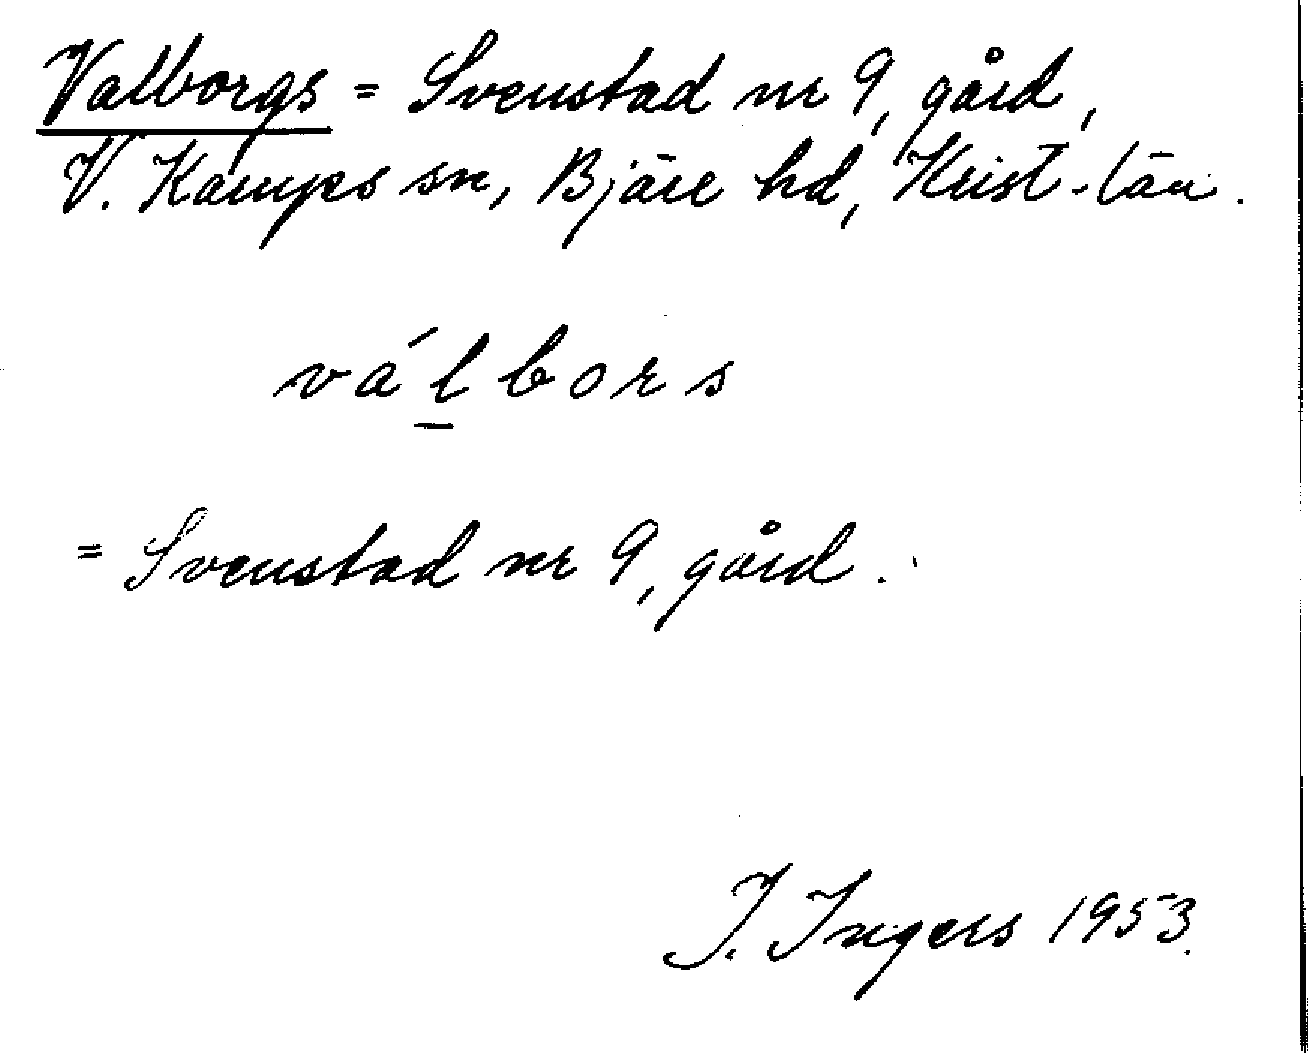 Valborgs = Svenstad nr 9, gård,
V. Karups sn, Bjäre hd, Krist-län.
válbors
= Svenstad nr 9, gård.
I. Ingers 1953.